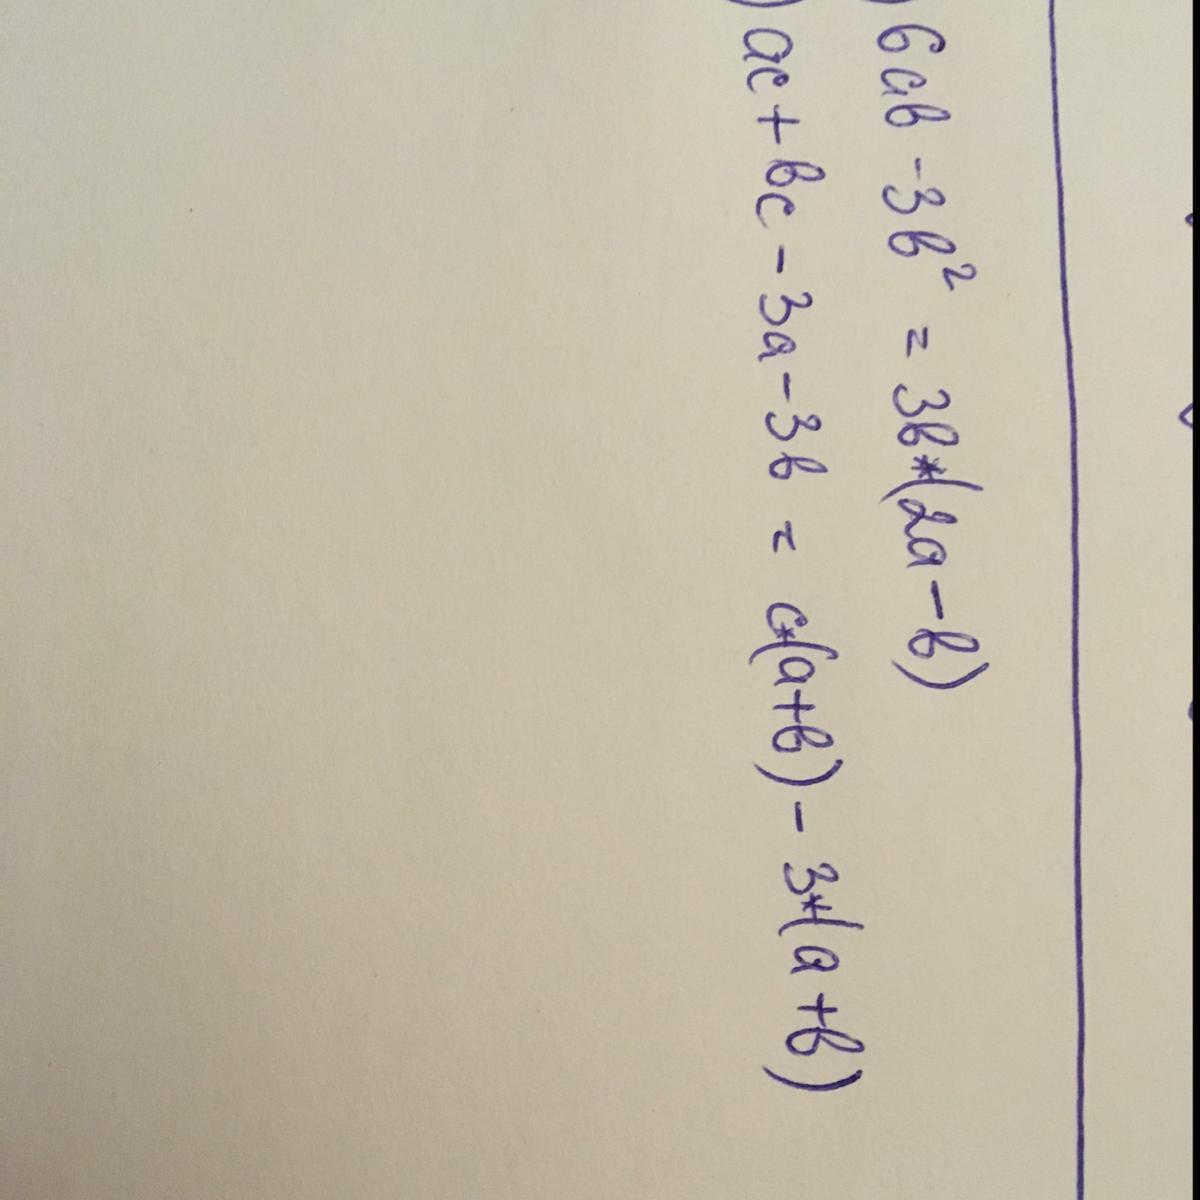 ) 6ab - 3b² = 3b*(2a - b)
) ac + bc - 3a - 3b = c*(a+b) - 3*(a + b)